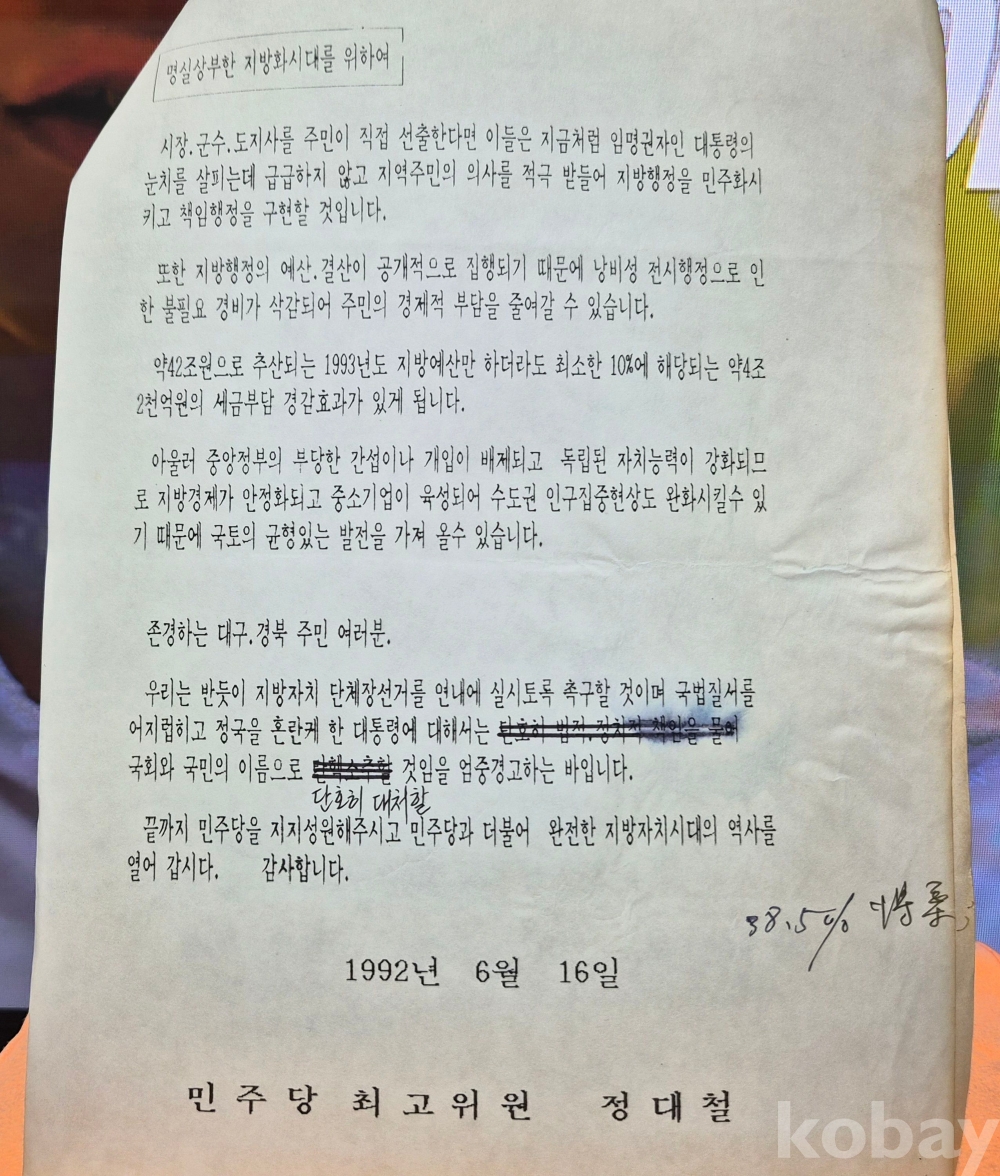 명실상부한 지방화시대를 위하여
시장.군수.도지사를 주민이 직접 선출한다면 이들은 지금처럼 임명권자인 대통령의
눈치를 살피는데 급급하지 않고 지역주민의 의사를 적극 받들어 지방행정을 민주화시
키고 책임행정을 구현할 것입니다.
또한 지방행정의 예산.결산이 공개적으로 집행되기 때문에 낭비성 전시행정으로 인
한 불필요 경비가 삭감되어 주민의 경제적 부담을 줄여갈 수 있습니다.
약42조원으로 추산되는 1993년도 지방예산만 하더라도 최소한 10%에 해당되는 약4조
2천억원의 세금부담 경감효과가 있게 됩니다.
아울러 중앙정부의 부당한 간섭이나 개입이 배제되고 독립된 자치능력이 강화되므
로 지방경제가 안정화되고 중소기업이 육성되어 수도권 인구집중현상도 완화시킬수 있
기 때문에 국토의 균형있는 발전을 가져 올수 있습니다.
존경하는 대구.경북 주민 여러분.
우리는 반듯이 지방자치 단체장선거를 연내에 실시토록 촉구할 것이며 국법질서를
어지럽히고 정국을 혼란케 한 대통령에 대해서는 단호히 법적,정치적 책임을 물어
국회와 국민의 이름으로 탄핵소추할 것임을 엄중경고하는 바입니다.
단호히 대처할
끝까지 민주당을 지지성원해주시고 민주당과 더불어 완전한 지방자치시대의 역사를
열어 갑시다. 감사합니다.
38.5%
1992년 6월 16일
민주당 최고위원 정대철
kobay